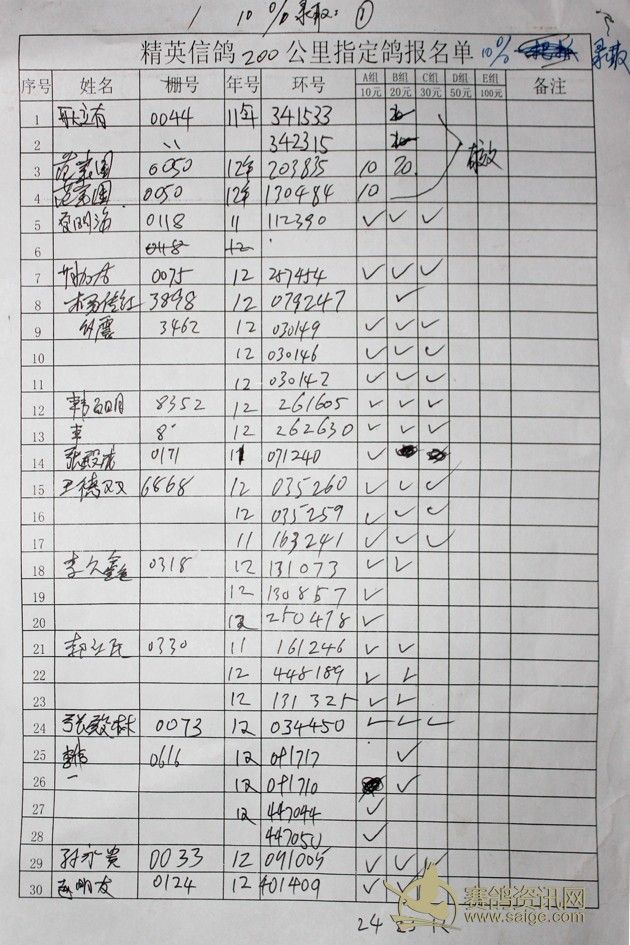 1 10% 录取: ①
精英信鸽 200 公里指定鸽报名单 10% 录取
序号 姓名 棚号 年号 环号 A组 10元 B组 20元 C组 30元 D组 50元 E组 100元 备注
1 0044 11年 341533
2 〃 342315
3 0050 12年 203835 10 20
4 0050 12年 130484 10
5 0118 11 112390 ✓ ✓ ✓
6 0118 12
7 0075 12 257454 ✓ ✓ ✓
8 杨传红 3898 12 079247 ✓
9 3462 12 030149 ✓ ✓ ✓
10 12 030146 ✓ ✓ ✓
11 12 030142 ✓ ✓ ✓
12 韩明 8352 12 261605 ✓ ✓ ✓
13 8 12 262630 ✓ ✓ ✓
14 0171 11 071240 ✓
15 王德双 6868 12 035260 ✓ ✓ ✓
16 12 035259 ✓ ✓ ✓
17 11 163241 ✓ ✓ ✓
18 李久鑫 0318 12 131073 ✓ ✓
19 12 130857 ✓
20 12 250478 ✓
21 0330 11 161246 ✓ ✓
22 12 448189 ✓ ✓
23 12 131325 ✓ ✓
24 张毅林 0073 12 034450 ✓ ✓ ✓
25 0616 12 091717 ✓
26 12 091710 ✓
27 12 447044 ✓
28 447050 ✓
29 孙永贵 0033 12 091005 ✓ ✓ ✓
30 赵明友 0124 12 401409 ✓
24
赛鸽资讯网
www.saige.com